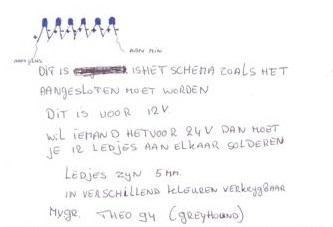 AAN PLUS
AAN MIN
DIT IS IS HET SCHEMA ZOALS HET
AANGESLOTEN MOET WORDEN
DIT IS VOOR 12V.
WIL IEMAND HET VOOR 24V DAN MOET
JE 12 LEDJES AAN ELKAAR SOLDEREN
LEDJES ZYN 5 MM.
IN VERSCHILLEND KLEUREN VERKRYGBAAR
MVGR. THEO 94 (GREYHOUND)